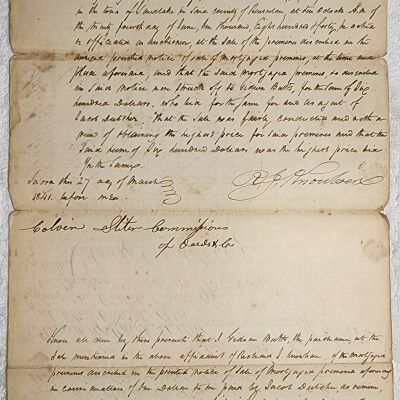 in the town of Candlake in said county of           at ten Oclock A.M. of
the twenty fourth day of June, one thousand, Eight hundred & forty, he acted
& officiated as auctioneer, at the sale of the premises described in the
annexed printed notice of sale of Mortgaged premises, at the time and
place aforesaid, and that the said Mortgaged premises so described
in said notice were struck off to Gideon Butts, for the sum of Six
hundred Dollars, who bid for the same for and as agent of
Jacob Dutcher. That the sale was fairly conducted and with a
view of obtaining the highest price for said premises and that the
said sum of Six hundred Dollars was the highest price bid
for the same
Sworn this 27 day of March
1841. before me
Colvin          Commissions
of Deeds &c
Know all men by these presents that I Gideon Butts, the purchaser at the
Sale mentioned in the above affidavit of Richard J.          of the Mortgaged
premises described in the printed notice of Sale of Mortgaged premises aforesaid
in consideration of One Dollar to me paid by Jacob Dutcher